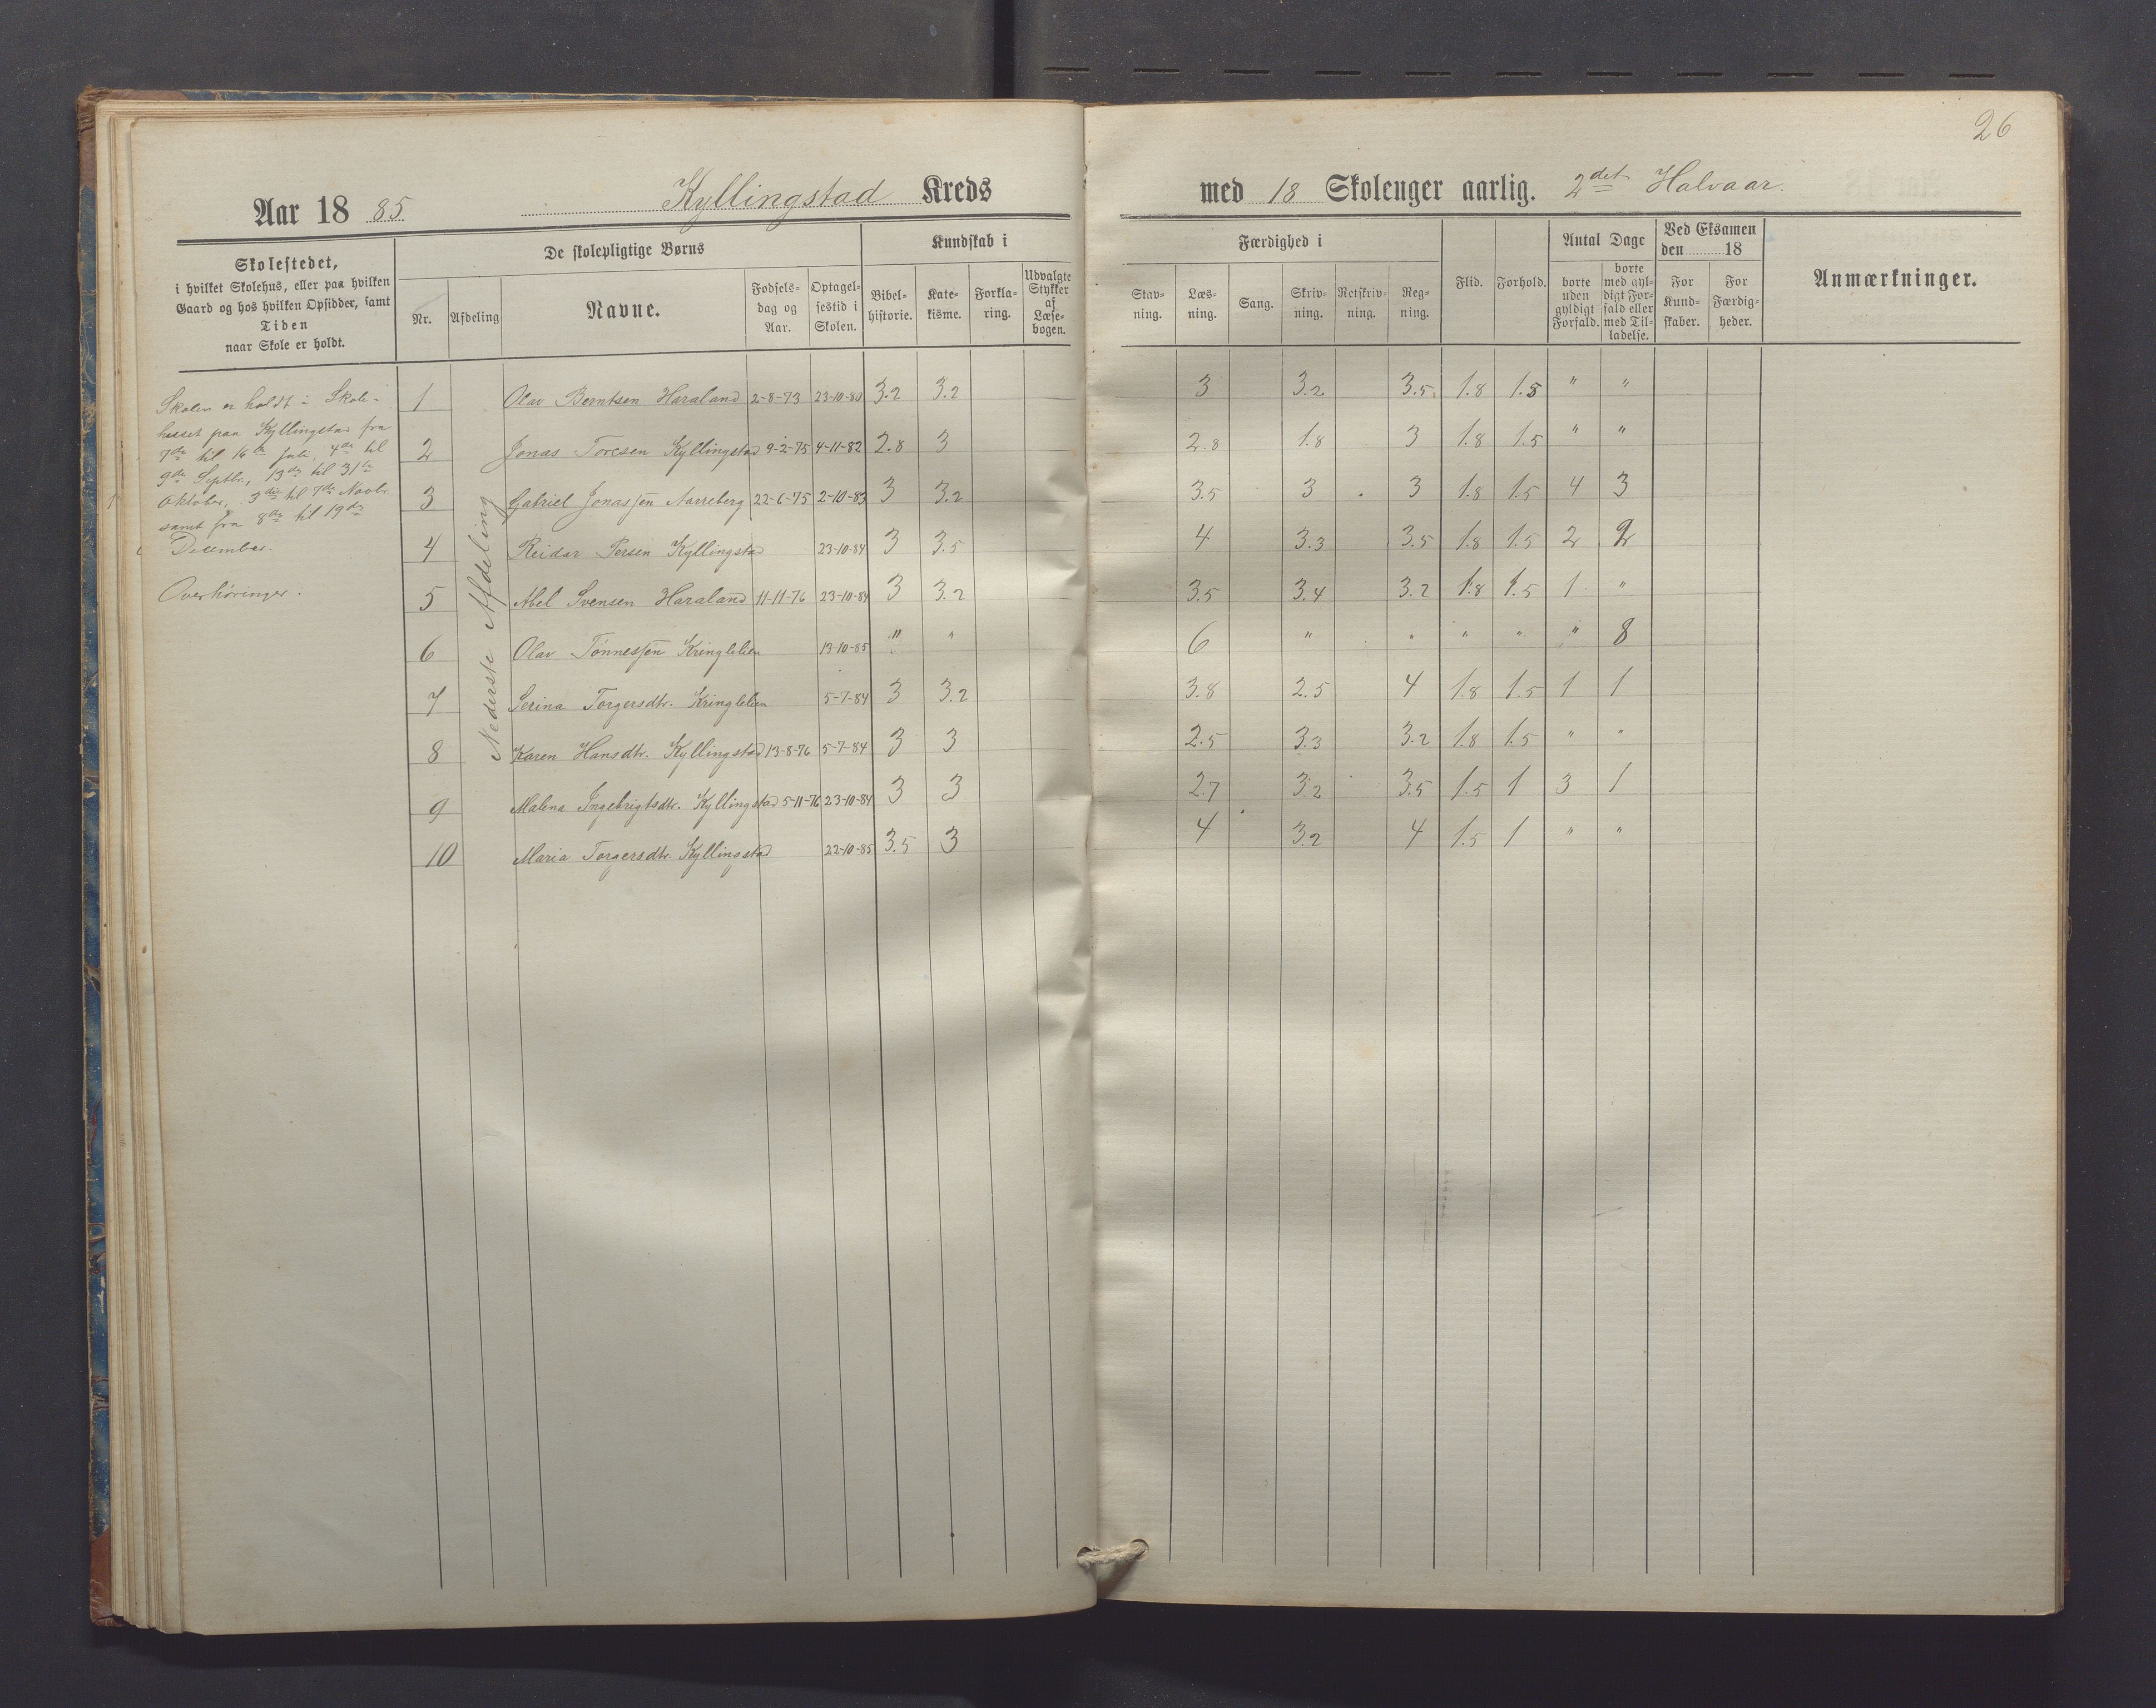 26
Aar 1885 Kyllingstad Kreds med 18 Skoleuger aarlig. 2det Halvaar.
Skolestedet,
i hvilket Skolehus, eller paa hvilken
Gaard og hos hvilken Opsidder, samt
Tiden
naar Skole er holdt.
De skolepligtige Børns
Nr. Afdeling Navne. Fødsels-dag og Aar. Optagel-sestid i Skolen.
Kundskab i
Bibel-historie. Kate-kisme. Forkla-ring. Udvalgte Stykker af Læse-bogen.
Færdighed i
Stav-ning. Læs-ning. Sang. Skriv-ning. Retskriv-ning. Reg-ning.
Flid. Forhold.
Antal Dage
borte uden gyldigt Forfald. borte med gyl-digt For-fald eller med Til-ladelse.
Ved Eksamen den 18
For Kund-skaber. For Færdig-heder.
Anmærkninger.
Skolen er holdt i Skole-
huset paa Kyllingstad fra
7de til 16de Juli, 4de til
9de Septbr., 13de til 31te
Oktober, 3die til 7de Novbr.
samt fra 8de til 19de
December.
Overhøringer.
Nederste Afdeling
1 Olav Berntsen Haraland 2-8-73 23-10-80 3.2 3.2 3 3.2 3.5 1.8 1.5 " "
2 Jonas Toresen Kyllingstad 9-2-75 4-11-82 2.8 3 2.8 1.8 3 1.8 1.5 " "
3 Gabriel Jonassen Aarreberg 22-6-75 2-10-83 3 3.2 3.5 3 3 1.8 1.5 4 3
4 Reidar Persen Kyllingstad 23-10-84 3 3.5 4 3.3 3.5 1.8 1.5 2 2
5 Abel Svensen Haraland 11-11-76 23-10-84 3 3.2 3.5 3.4 3.2 1.8 1.5 1 "
6 Olav Tønnessen Kringlelien 13-10-85 " " 6 " " " " " 8
7 Serina Torgersdtr. Kringlelien 5-7-84 3 3.2 3.8 2.5 4 1.8 1.5 1 1
8 Karen Hansdtr. Kyllingstad 13-8-76 5-7-84 3 3 2.5 3.3 3.2 1.8 1.5 " "
9 Malena Ingebrigtsdtr. Kyllingstad 5-11-76 23-10-84 3 3 2.7 3.2 3.5 1.5 1 3 1
10 Maria Torgersdtr. Kyllingstad 22-10-85 3.5 3 4 3.2 4 1.5 1 " "